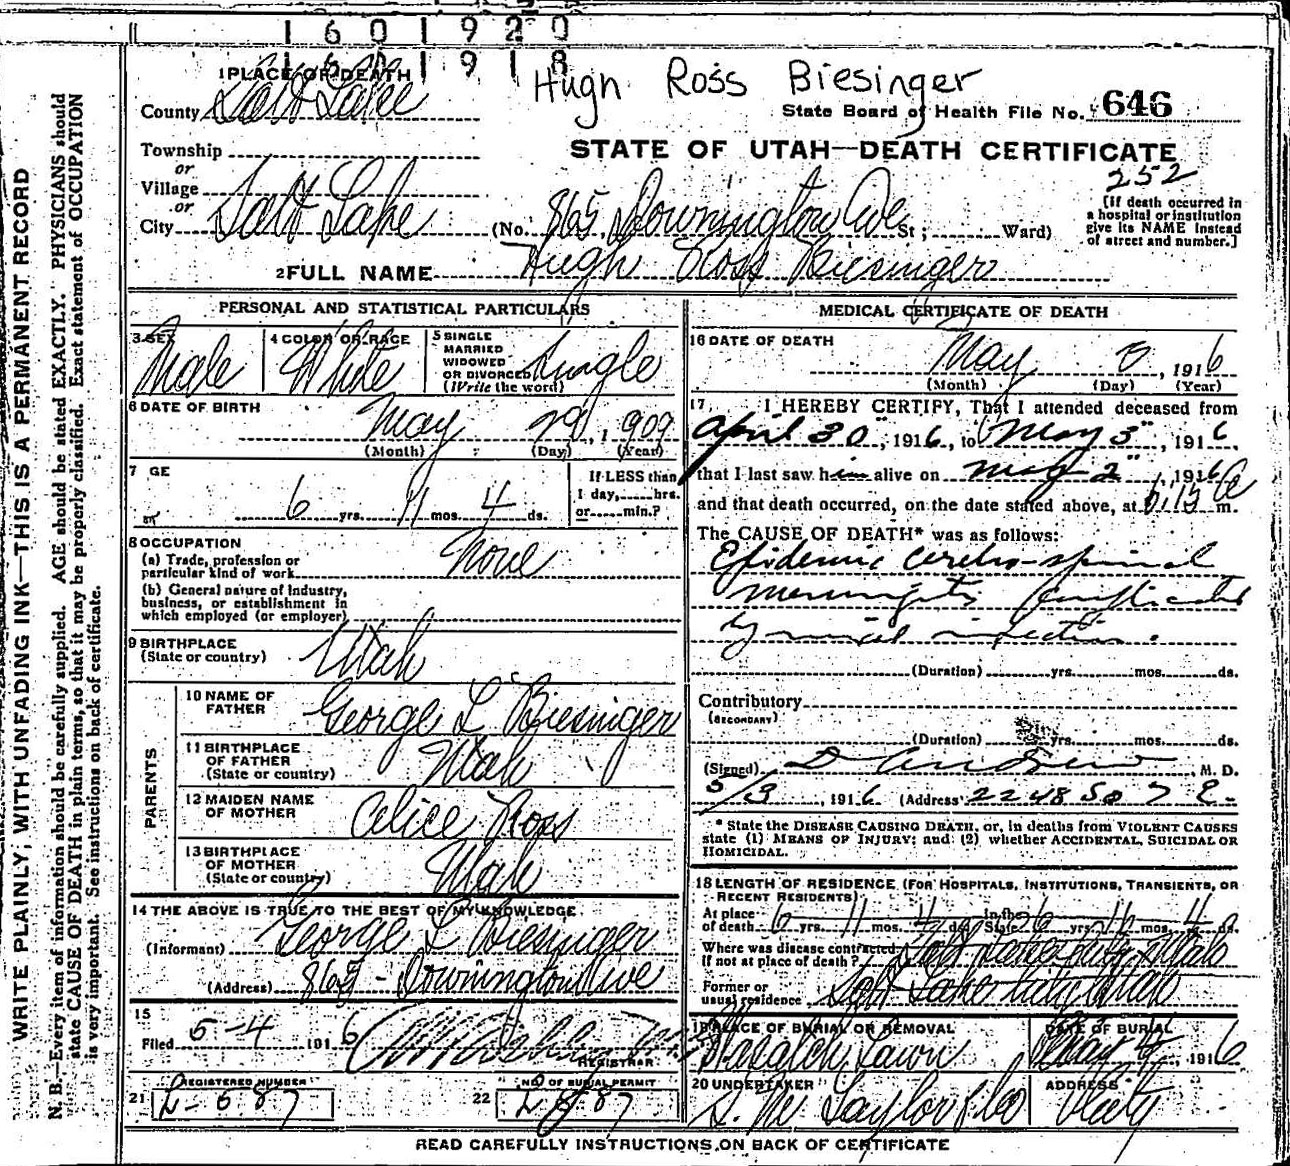 1 6 0 1 9 2 0
1 9 1 8
Hugh Ross Biesinger
1 PLACE OF DEATH
County Salt Lake
State Board of Health File No. 646
STATE OF UTAH—DEATH CERTIFICATE
252
Township
or
Village
or
City Salt Lake (No. 865 Downington Ave St; Ward)
[If death occurred in
a hospital or institution
give its NAME instead
of street and number.]
2 FULL NAME Hugh Ross Biesinger
PERSONAL AND STATISTICAL PARTICULARS
3 SEX Male
4 COLOR OR RACE White
5 SINGLE
MARRIED
WIDOWED
OR DIVORCED
(Write the word)
Single
6 DATE OF BIRTH
May 29, 1909
(Month) (Day) (Year)
7 GE
6 yrs. 11 mos. 4 ds.
If LESS than
1 day, hrs.
or min.?
8 OCCUPATION
(a) Trade, profession or
particular kind of work None
(b) General nature of Industry,
business, or establishment in
which employed (or employer)
9 BIRTHPLACE
(State or country) Utah
PARENTS
10 NAME OF
FATHER George L Biesinger
11 BIRTHPLACE
OF FATHER
(State or country) Utah
12 MAIDEN NAME
OF MOTHER Alice Ross
13 BIRTHPLACE
OF MOTHER
(State or country) Utah
14 THE ABOVE IS TRUE TO THE BEST OF MY KNOWLEDGE
(Informant) George L Biesinger
(Address) 865 - Downington Ave
15
Filed 5-4 1916
REGISTRAR
21 REGISTERED NUMBER
L-587
22 NO OF BURIAL PERMIT
L 587
MEDICAL CERTIFICATE OF DEATH
16 DATE OF DEATH
May 3, 1916
(Month) (Day) (Year)
17 I HEREBY CERTIFY, That I attended deceased from
April 30", 1916, to May 3", 1916,
that I last saw him alive on May 2" 1916
and that death occurred, on the date stated above, at 6,15 A m.
The CAUSE OF DEATH* was as follows:
Epidemic cerebro-spinal
meningitis complicated
by infection.
(Duration) yrs. mos. ds.
Contributory
(SECONDARY)
(Duration) yrs. mos. ds.
(Signed) D Andrew, M. D.
5/3, 1916 (Address) 2248 So 7 E.
* State the DISEASE CAUSING DEATH, or, in deaths from VIOLENT CAUSES
state (1) MEANS OF INJURY; and (2) whether ACCIDENTAL, SUICIDAL OR
HOMICIDAL.
18 LENGTH OF RESIDENCE (FOR HOSPITALS, INSTITUTIONS, TRANSIENTS, OR
RECENT RESIDENTS)
At place
of death 6 yrs. 11 mos. 4 ds. In the State 6 yrs. 11 mos. 4 ds.
Where was disease contracted
If not at place of death? Salt Lake City Utah
Former or
usual residence Salt Lake City Utah
19 PLACE OF BURIAL OR REMOVAL
Wasatch Lawn
DATE OF BURIAL
May 4, 1916
20 UNDERTAKER
S. M. Taylor & Co
ADDRESS
City
READ CAREFULLY INSTRUCTIONS ON BACK OF CERTIFICATE
WRITE PLAINLY, WITH UNFADING INK—THIS IS A PERMANENT RECORD
N. B.—Every item of information should be carefully supplied. AGE should be stated EXACTLY. PHYSICIANS should
state CAUSE OF DEATH in plain terms, so that it may be properly classified. Exact statement of OCCUPATION
is very important. See instructions on back of certificate.